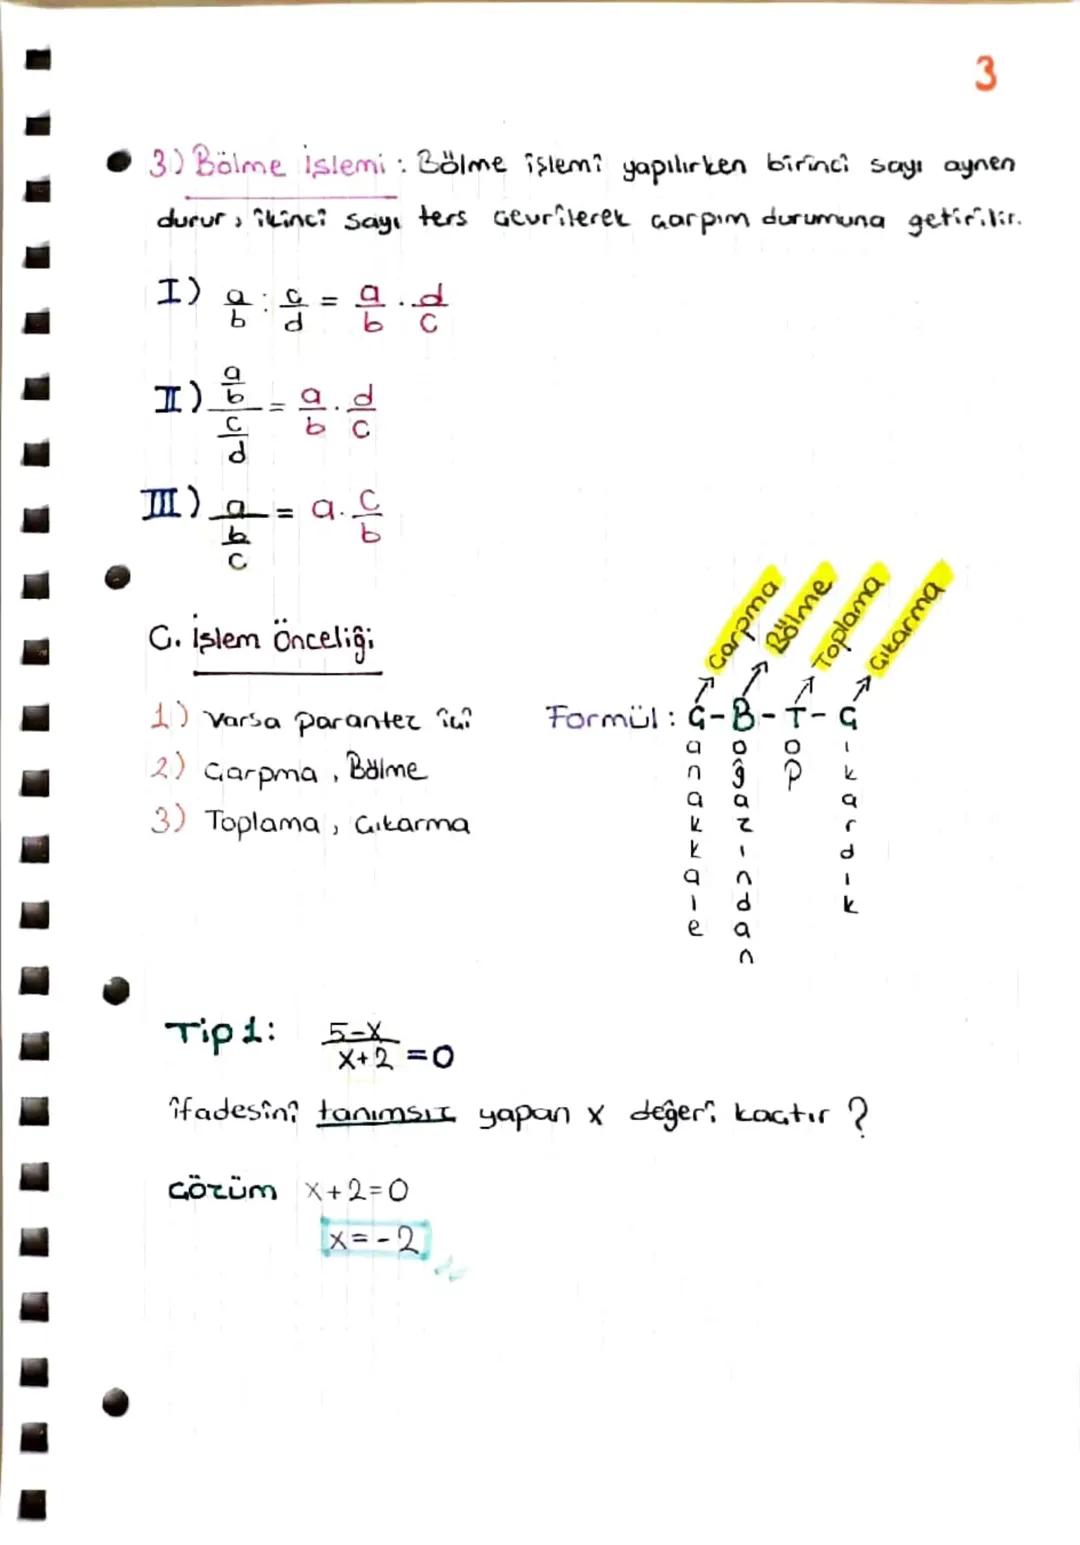 3
3.) Bölme işlemi : Bölme işlemi yapılırken birinci sayı aynen
durur, ikinci sayı ters çevrilerek çarpım durumuna getirilir.
I) a/b : c/d = a/b . d/c
II) (a/b)/(c/d) = a/b . d/c
III) a/(b/c) = a . c/b
C. İşlem Önceliği
1) Varsa parantez içi
2) Çarpma, Bölme
3) Toplama, Çıkarma
Çarpma Bölme Toplama Çıkarma
Formül : Ç-B-T-Ç
Çanakkale
Boğazından
Top
Çıkardık
Tip 1: (5-x)/(x+2) = 0
ifadesini tanımsız yapan x değeri kaçtır ?
Çözüm x+2=0
x=-2